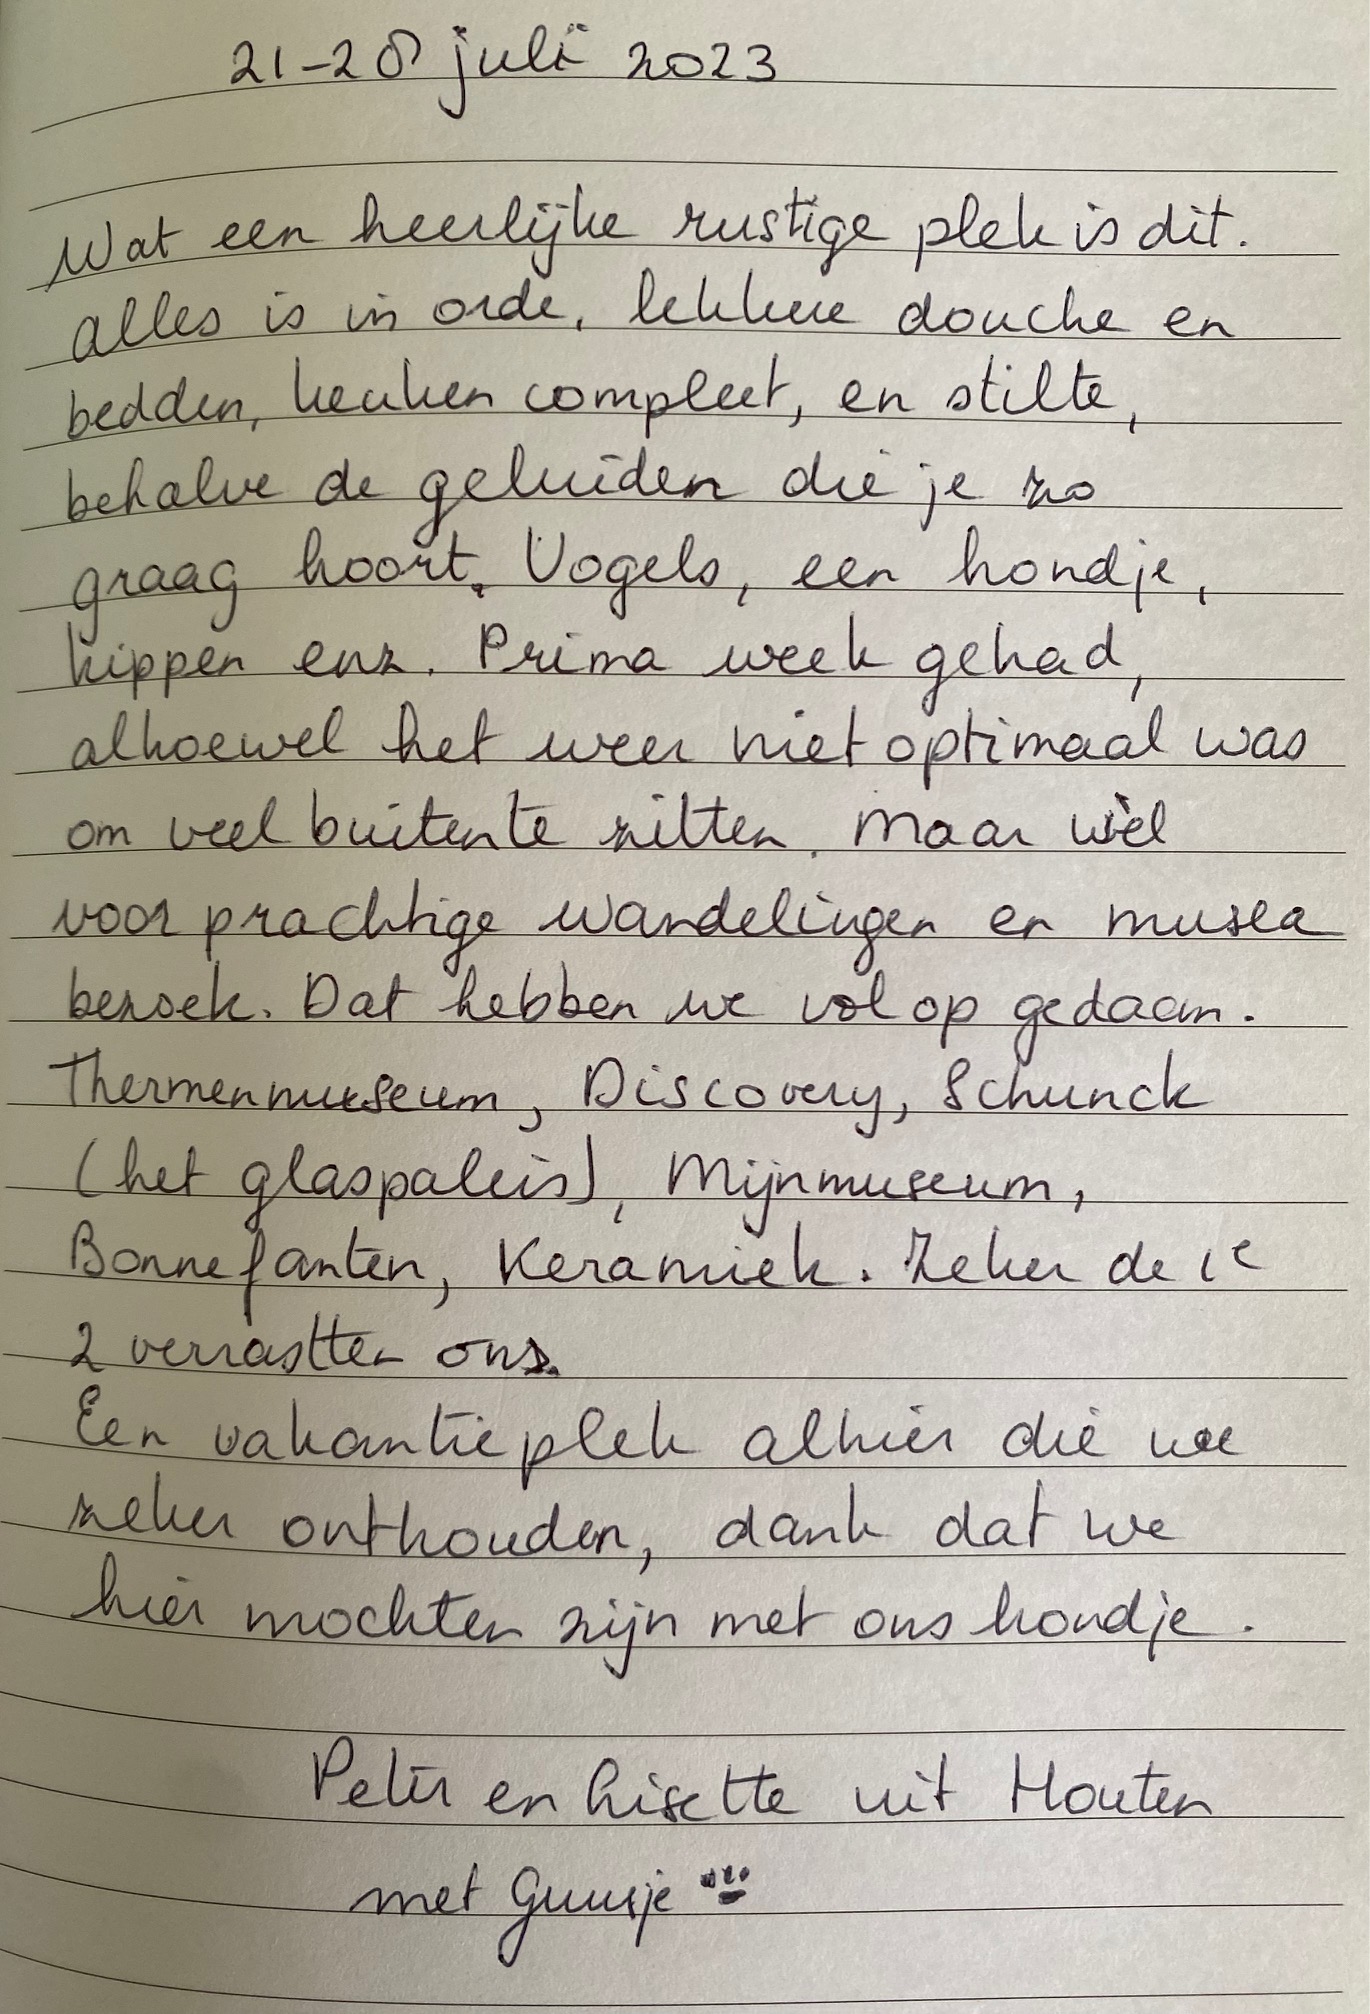 21-28 juli 2023
Wat een heerlijke rustige plek is dit.
alles is in orde, lekkere douche en
bedden, keuken compleet, en stilte,
behalve de geluiden die je zo
graag hoort. Vogels, een hondje,
kippen enz. Prima week gehad,
alhoewel het weer niet optimaal was
om veel buiten te zitten. Maar wèl
voor prachtige wandelingen en musea
bezoek. Dat hebben we volop gedaan.
Thermenmuseum, Discovery, Schunck
(het glaspaleis), Mijnmuseum,
Bonnefanten, Keramiek. Zeker de 1e
2 verrastten ons.
Een vakantieplek alhier die we
zeker onthouden, dank dat we
hier mochten zijn met ons hondje.
Peter en Lisette uit Houten
met Guusje